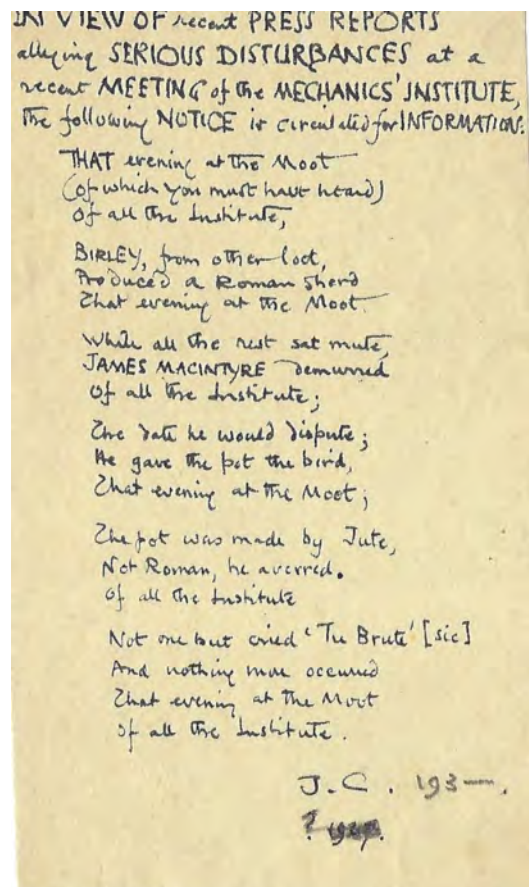 IN VIEW OF recent PRESS REPORTS
alleging SERIOUS DISTURBANCES at a
recent MEETING of the MECHANICS' INSTITUTE,
the following NOTICE is circulated for INFORMATION:
THAT evening at the Moot
(of which you must have heard)
Of all the Institute,
BIRLEY, from other loot,
Produced a Roman sherd
That evening at the Moot.
While all the rest sat mute,
JAMES MACINTYRE demurred
Of all the Institute;
The date he would dispute;
He gave the pot the bird,
That evening at the Moot;
The pot was made by Jute,
Not Roman, he averred.
Of all the Institute
Not one but cried 'Tu Brute' [sic]
And nothing more occurred
That evening at the Moot
Of all the Institute.
J.C. 193—.